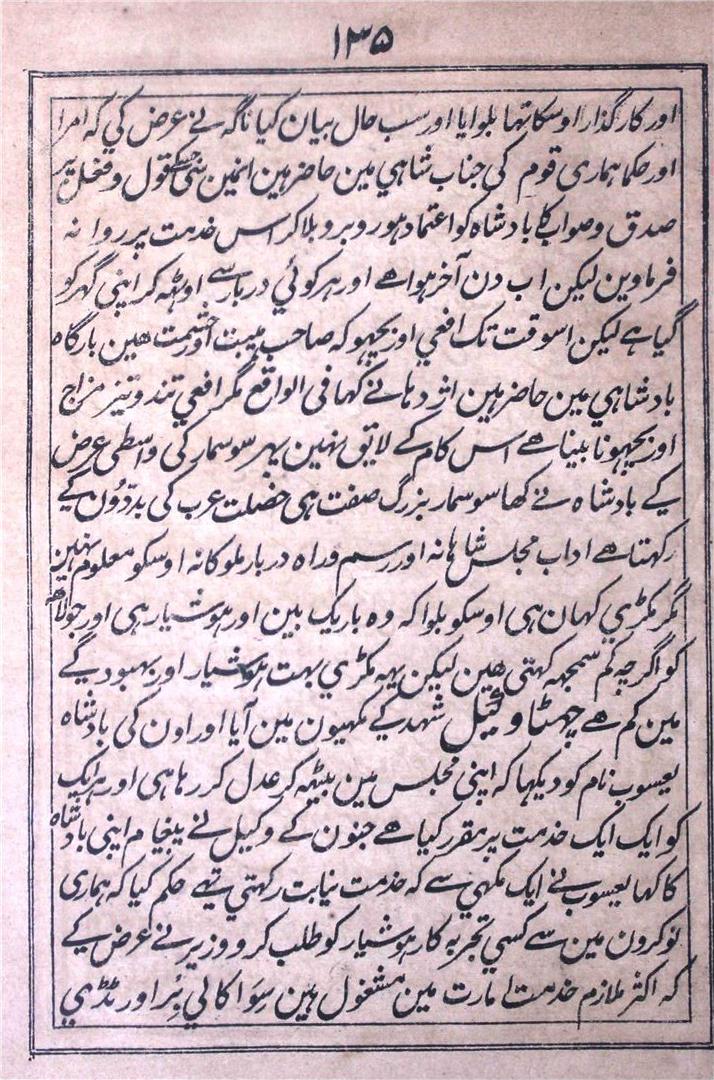 ۱۳۵
اور کارگذار اوسکا تھا بلوایا اور سب حال بیان کیا ناگہ نے عرض کی کہ امرا
اور حکما ہماری قوم کی جناب شاہي مین حاضر ہین انمین سی جسکے قول و فعل پر
صدق و صواب کا بادشاہ کو اعتماد ہو روبرو بلا کر اس خدمت پر روانہ
فرماوین لیکن اب دن آخر ہوا ھے اور ہر کوئي دربار سے اوٹھہ کر اپنی گھر کو
گیا ہے لیکن اسوقت تک افعي اور بچھو کہ صاحب ہیبت اور حشمت ھین بارگاہ
بادشاہي مین حاضر ہین اژدہا نے کہا فی الواقع مگر افعي تند و تیز مزاج
اور بچھو نابینا ھے اس کام کے لایق نہین پھر سوسمار کی واسطی عرض
کے بادشاہ نے کھا سوسمار بزرگ صفت ہی خصلت عرب کی بدوُن کے
رکہتا ھے اداب مجلس شاہانہ اور رسم و راہ دربار ملوکانہ اوسکو معلوم نہین
مگر مکڑي کہان ہی اوسکو بلوا کہ وہ باریک بین اور ہوشیار ہی اور جولاھہ
کو اگرچہ کم سمجہہ کہتی ھین لیکن یہہ مکڑي بہت ہوشیار اور بہبود گے
مین کم ھے چھٹا وکیل شہد کے مکھیون مین آیا اور اون کی بادشاہ
یعسوب نام کو دیکہا کہ اپنی مجلس مین بیٹھہ کر عدل کر رہا ہی اور ہر ایک
کو ایک ایک خدمت پر مقرر کیا ھے جنون کے وکیل نے پیغام اپنی بادشاہ
کا کہا یعسوب نے ایک مکھي سے کہ خدمت نیابت رکہتي تہے حکم کیا کہ ہماری
نوکرون مین سے کسي تجربہ کار ہوشیار کو طلب کرو وزیر نے عرض کے
کہ اکثر ملازم خدمت امارت مین مشغول ہین سِوَا کالي بِڑ اور ٹڈي